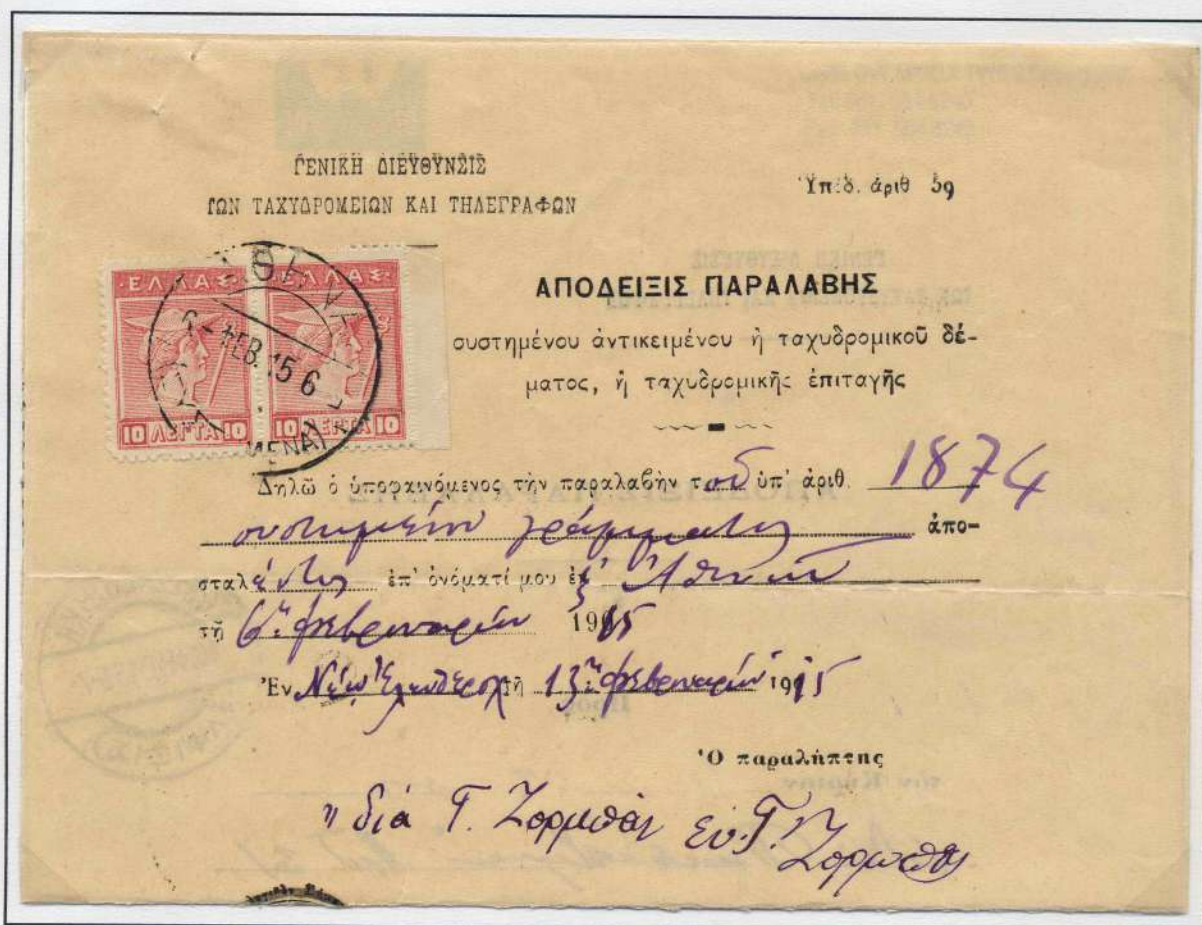 ΓΕΝΙΚΗ ΔΙΕΥΘΥΝΣΙΣ
ΤΩΝ ΤΑΧΥΔΡΟΜΕΙΩΝ ΚΑΙ ΤΗΛΕΓΡΑΦΩΝ
Ὑπόδ. ἀριθ 39
ΕΛΛΑΣ ΕΛΛΑΣ
6-ΦΕΒ.15 6
10 ΛΕΠΤΑ 10 10 ΛΕΠΤΑ 10
ΑΠΟΔΕΙΞΙΣ ΠΑΡΑΛΑΒΗΣ
συστημένου ἀντικειμένου ἢ ταχυδρομικοῦ δέ-
ματος, ἢ ταχυδρομικῆς ἐπιταγῆς
Δηλῶ ὁ ὑποφαινόμενος τὴν παραλαβὴν τοῦ ὑπ' ἀριθ. 1874
συστημένου γράμματος ἀπο-
σταλέντος ἐπ' ὀνόματί μου ἐξ Ἀθηνῶν
τῇ 6ῃ Φεβρουαρίου 1915
Ἐν τῇ 13ῃ Φεβρουαρίου 1915
Ὁ παραλήπτης
διά Γ.